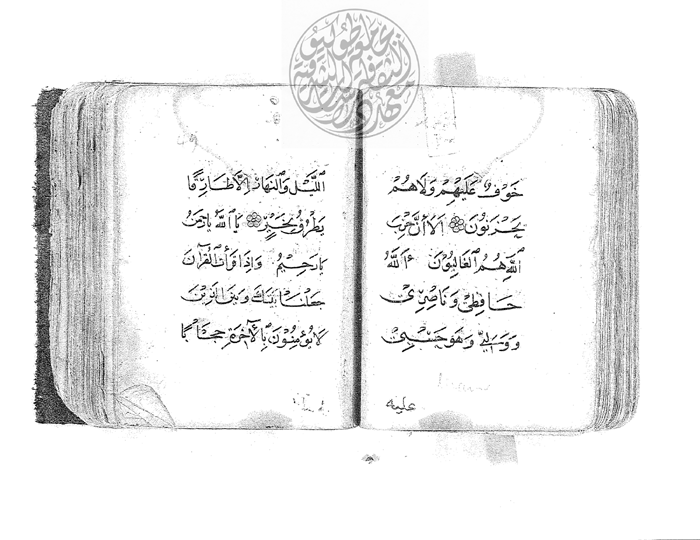 خَوْفٌ عَلَيْهِمْ وَلَاهُمْ
يَحْزَنُونَ اَلَا اِنَّ حِزْبَ
اللّٰهِ هُمُ الْغَالِبُونَ اَللّٰهُ
حَافِظِي وَنَاصِرِي
وَوَلِيِّ وَهُوَ حَسْبِي
عليه
اللَّيْلِ وَالنَّهَارِ اِلَّا طَارِقًا
يَطْرُقُ بِخَيْرٍ يَا اَللّٰهُ يَارَحْمٰنُ
يَارَحِيمُ وَاِذَا قَرَأْتَ الْقُرْاٰنَ
جَعَلْنَا بَيْنَكَ وَبَيْنَ الَّذِينَ
لَا يُؤْمِنُونَ بِالْاٰخِرَةِ حِجَابًا